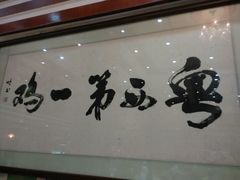 粤西第一鸡